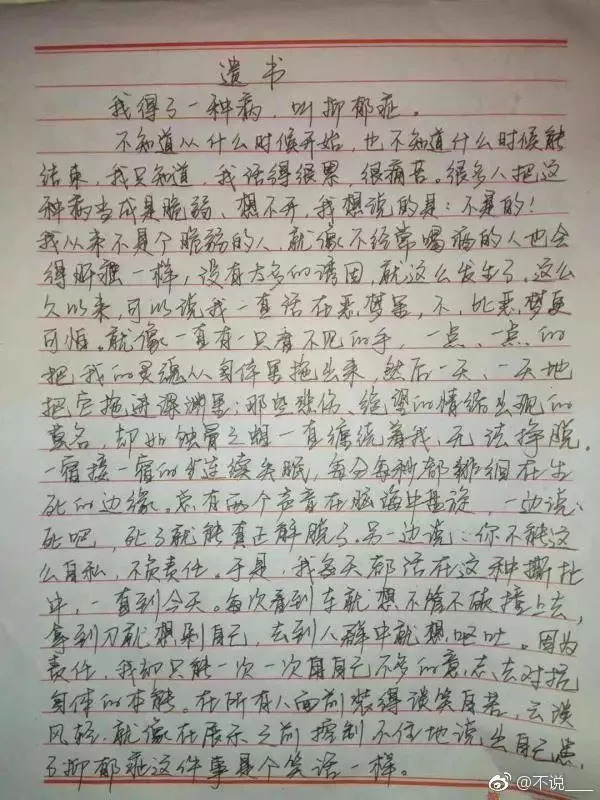 遗书
我得了一种病，叫抑郁症。
不知道从什么时候开始，也不知道什么时候能
结束，我只知道，我活得很累，很痛苦。很多人把这
种病当成是脆弱、想不开，我想说的是：不是的！
我从来不是个脆弱的人，就像不经常喝酒的人也会
得肝癌一样，没有太多的诱因，就这么发生了，这么
久以来，可以说我一直活在恶梦里，不，比恶梦更
可怕。就像一直有一只看不见的手，一点、一点的
把我的灵魂从身体里拖出来，然后一天、一天地
把它拖进深渊里；那些悲伤、绝望的情绪出现的
莫名，却如蚀骨之蛆一直缠绕着我，无法挣脱。
一宿接一宿的连续失眠，每分每秒都徘徊在生
死的边缘。总有两个声音在脑海中盘旋，一边说：
死吧，死了就能真正解脱了。另一边说：你不能这
么自私，不负责任。于是，我每天都活在这种撕扯
中，一直到今天。每次看到车就想不管不顾撞上去，
拿到刀就想剁自己，去到人群中就想呕吐。因为
责任，我却只能一次一次用自己不多的意志去对抗
身体的本能。在所有人面前装得谈笑自若，云淡
风轻，就像在展示之前控制不住地说出自己患
了抑郁症这件事是个笑话一样。
@不说__